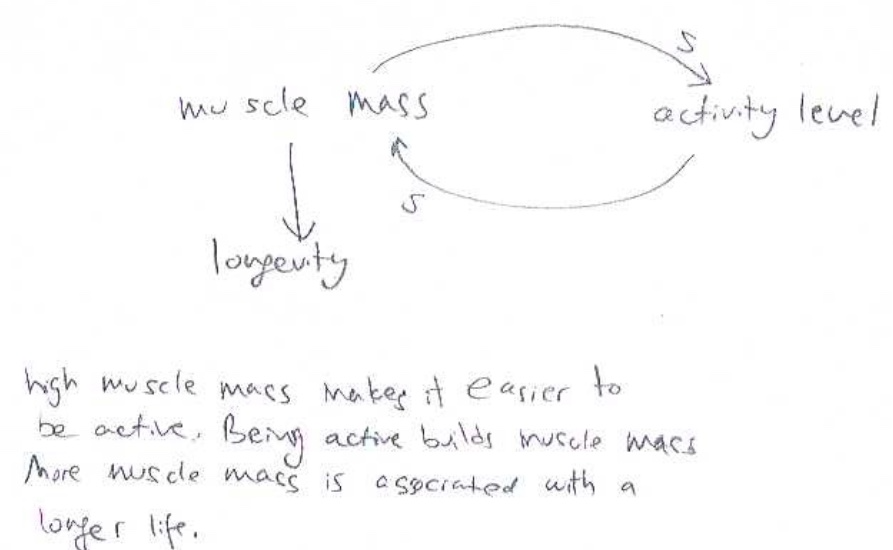 S
muscle mass activity level
S
longevity
high muscle mass makes it easier to
be active. Being active builds muscle mass
More muscle mass is associated with a
longer life.